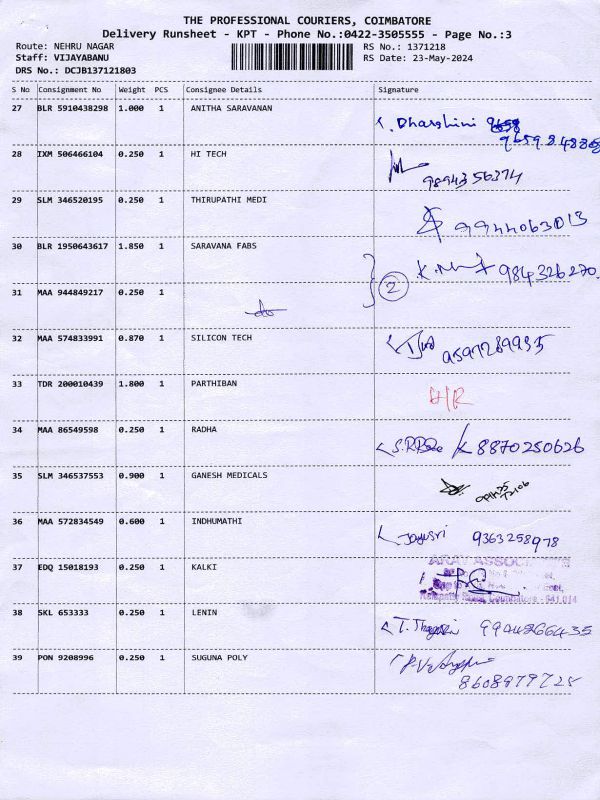 THE PROFESSIONAL COURIERS, COIMBATORE
Delivery Runsheet - KPT - Phone No.:0422-3505555 - Page No.:3
Route: NEHRU NAGAR RS No.: 1371218
Staff: VIJAYABANU RS Date: 23-May-2024
DRS No.: DCJB137121803
S No Consignment No Weight PCS Consignee Details Signature
27 BLR 5910438298 1.000 1 ANITHA SARAVANAN Dharshini
28 IXM 506466104 0.250 1 HI TECH 9894356374
29 SLM 346520195 0.250 1 THIRUPATHI MEDI 9944063013
30 BLR 1950643617 1.850 1 SARAVANA FABS 984326270
31 MAA 944849217 0.250 1 do 2
32 MAA 574833991 0.870 1 SILICON TECH 9597289935
33 TDR 200010439 1.800 1 PARTHIBAN H/R
34 MAA 86549598 0.250 1 RADHA 8870250626
35 SLM 346537553 0.900 1 GANESH MEDICALS
36 MAA 572834549 0.600 1 INDHUMATHI Jayasri 9363258978
37 EDQ 15018193 0.250 1 KALKI
38 SKL 653333 0.250 1 LENIN 9904866435
39 PON 9208996 0.250 1 SUGUNA POLY
8608979725